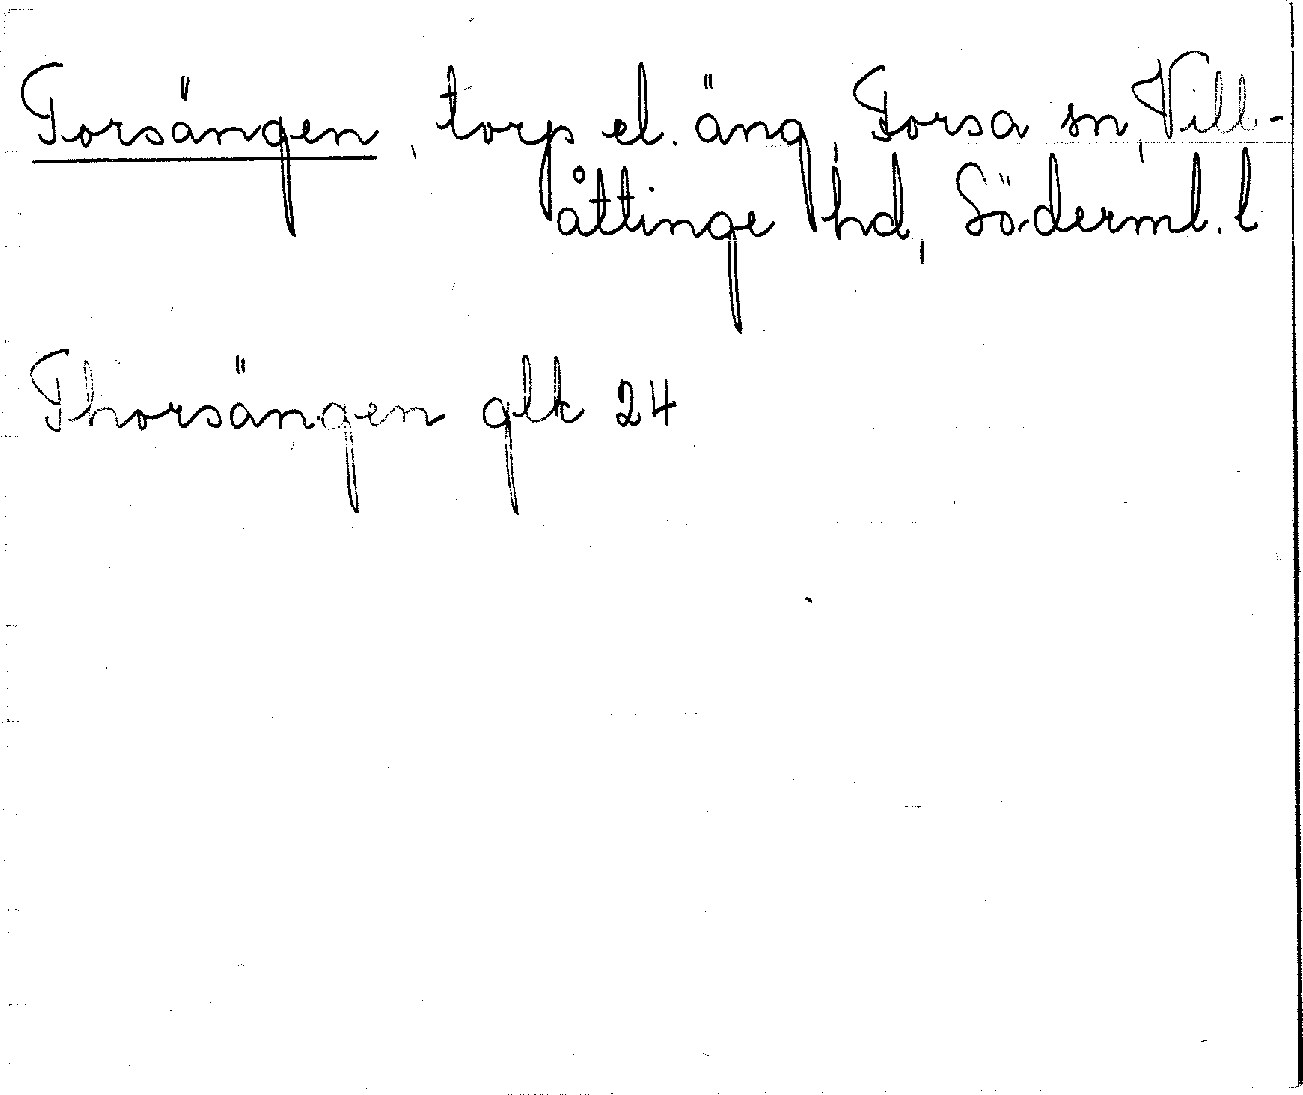 Torsängen, torp el. äng, Forsa sn, Vill-
åttinge hd, Söderml. l
Thorsängen glk 24